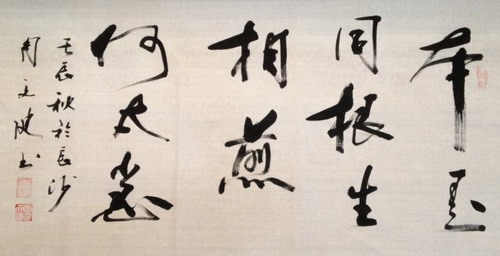 本是
同根生
相煎
何太急
壬辰秋於長沙
周文书